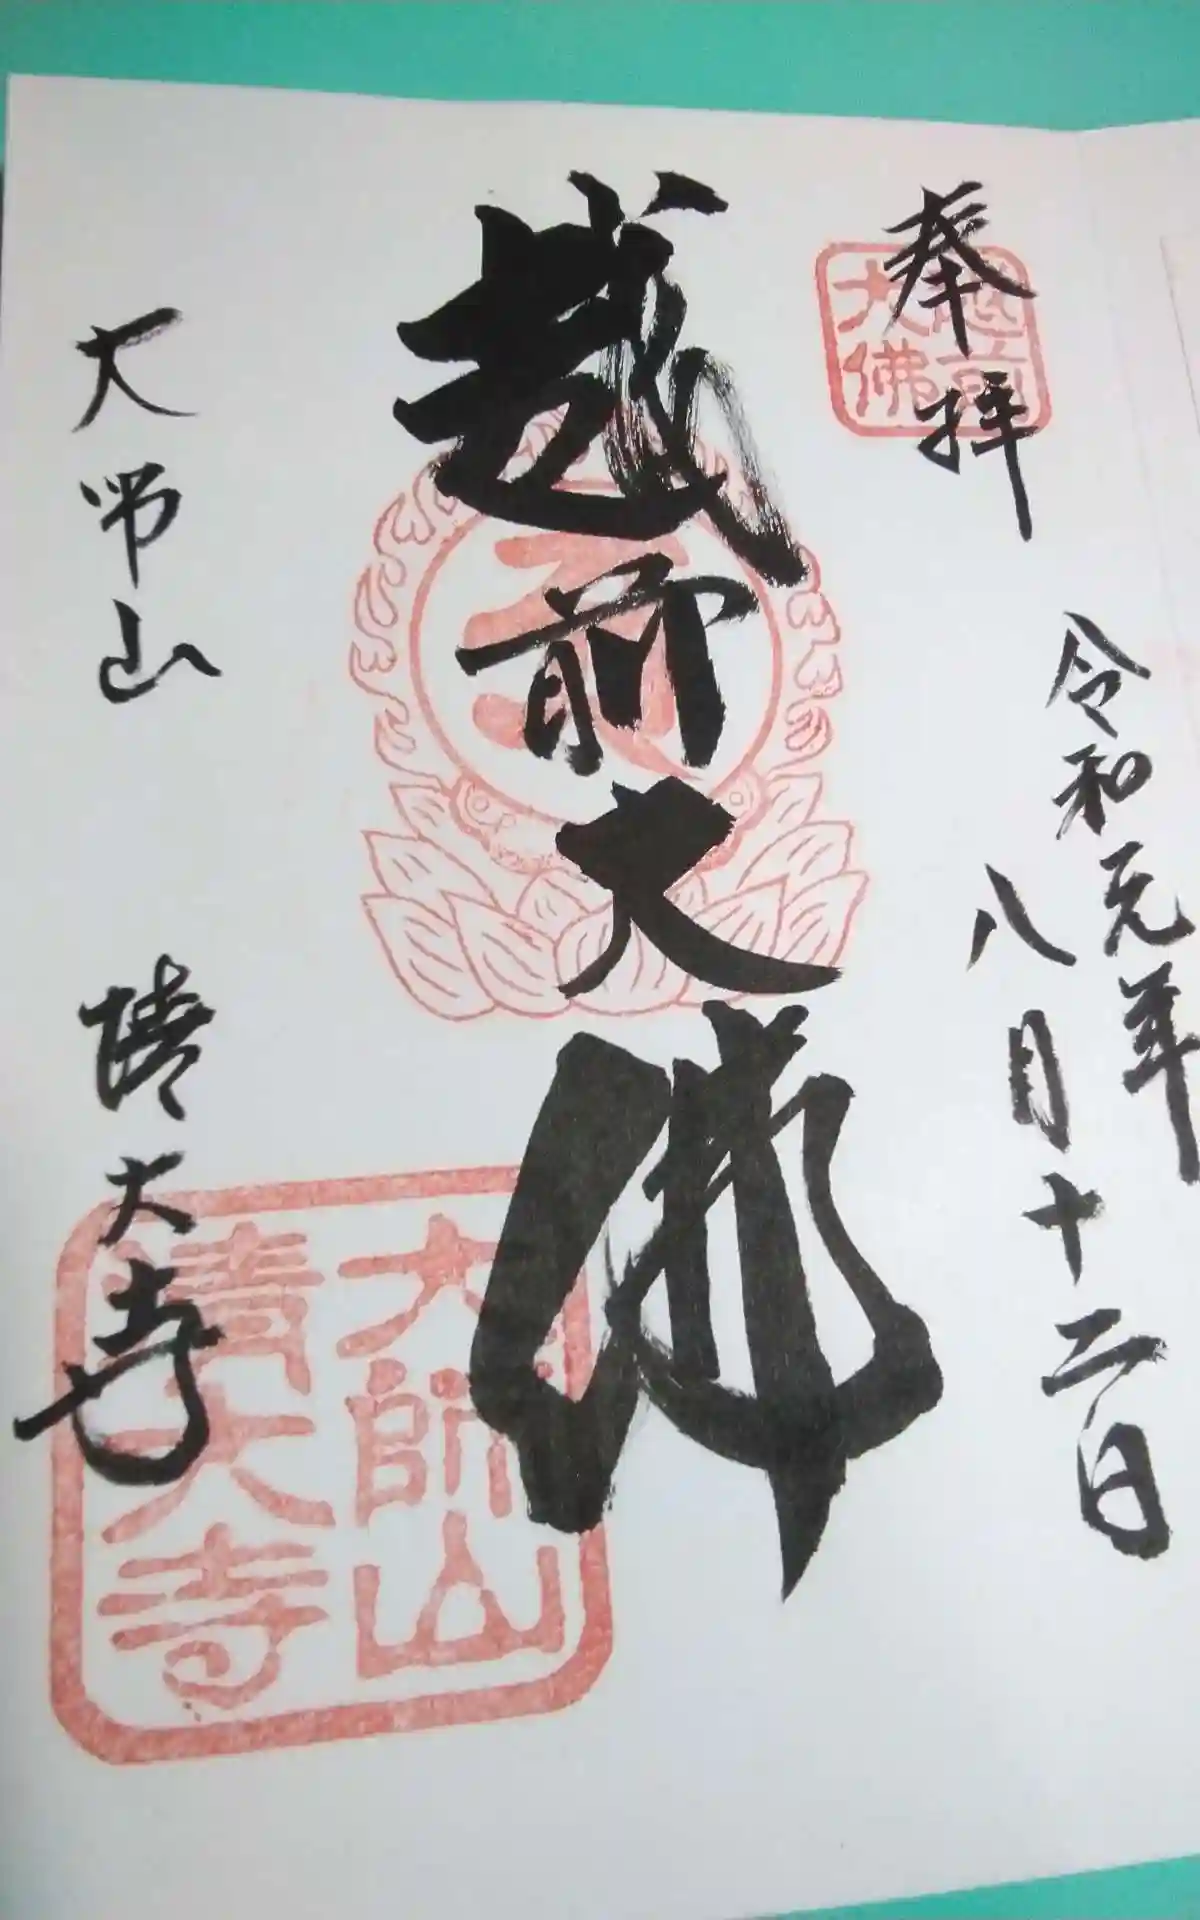 奉拝
越前
大佛
令和元年
八月十二日
越前大佛
大師山 清大寺
大師山
清大寺